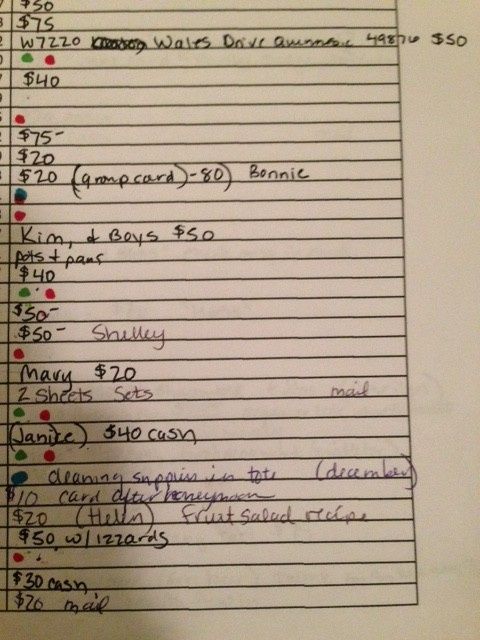 $50
$75
W7220 Wales Drive 49876 $50
$40
$75-
$20
$20 (group card)-80) Bonnie
Kim, & Boys $50
pots + pans
$40
$50-
$50- Shelley
Mary $20
2 Sheets Sets mail
(Janice) $40 cash
cleaning supplies in tote (december)
$10 card after honeymoon
$20 (Helen) Fruit Salad recipe
$50 w/ izzards
$30 cash
$20 mail